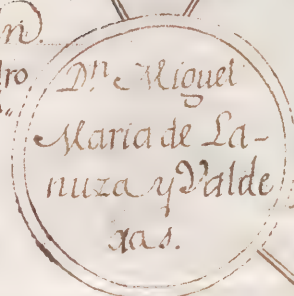 n.
dro
Dⁿ Miguel
Maria de La-
nuza y Valde
xas.